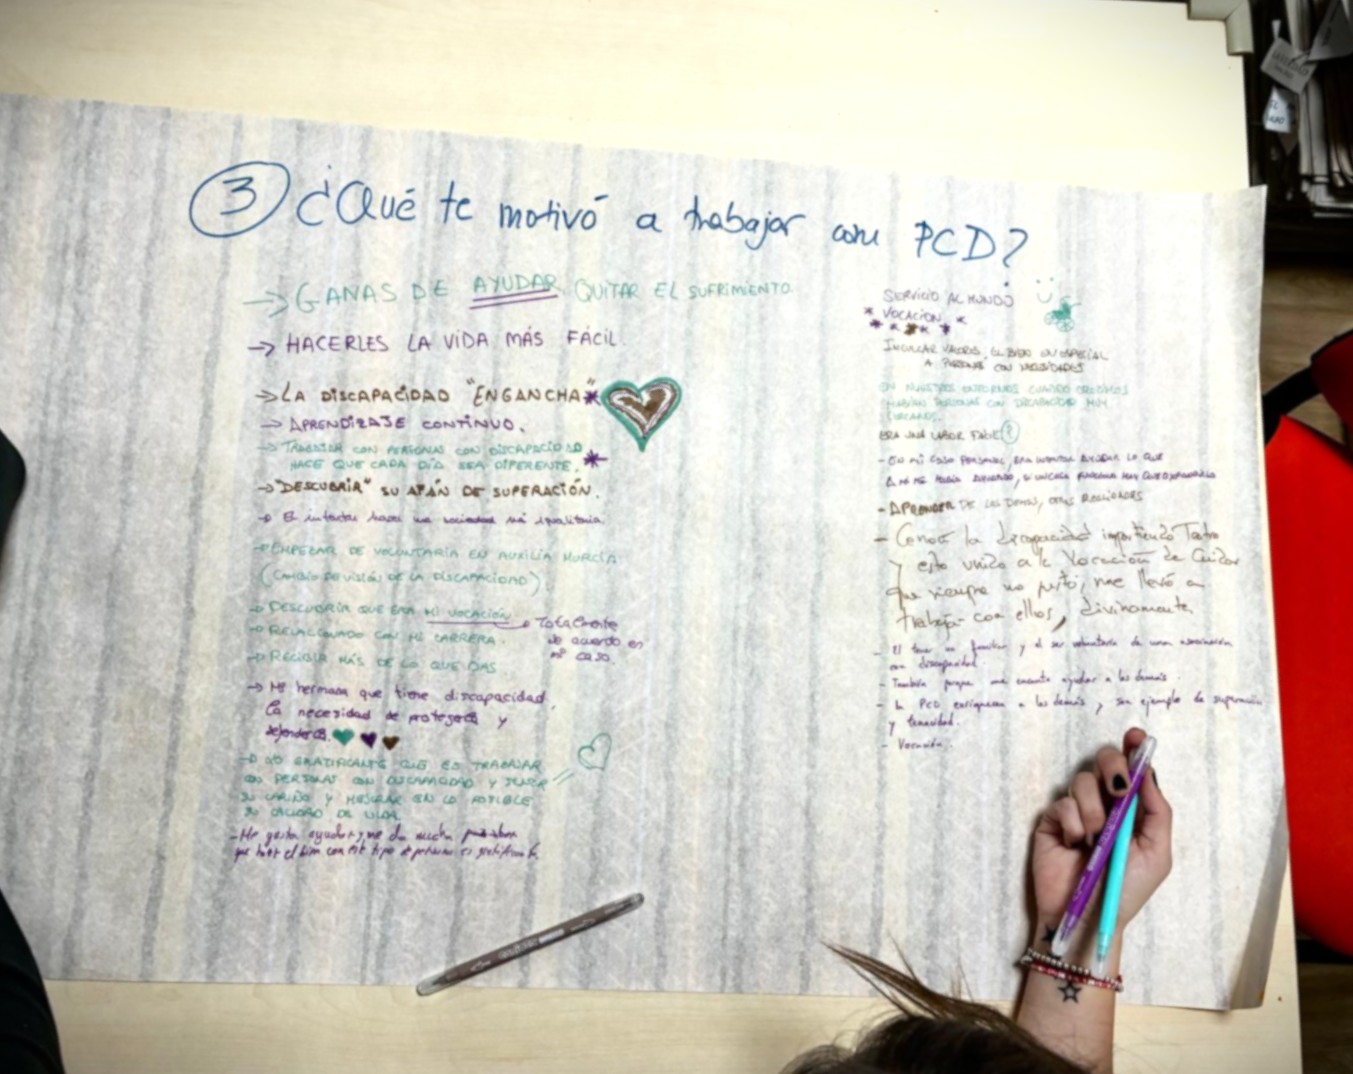 ③ ¿Qué te motivó a trabajar con PCD?
→ GANAS DE AYUDAR, QUITAR EL SUFRIMIENTO.
→ HACERLES LA VIDA MÁS FÁCIL.
→ LA DISCAPACIDAD "ENGANCHA"
→ APRENDIZAJE CONTINUO.
→ TRABAJAR CON PERSONAS CON DISCAPACIDAD
HACE QUE CADA DÍA SEA DIFERENTE.
→ "DESCUBRIR" SU AFÁN DE SUPERACIÓN.
→ El intentar hacer una sociedad más igualitaria
→ EMPEZAR DE VOLUNTARIA EN AUXILIA MURCIA.
(CAMBIO DE VISIÓN DE LA DISCAPACIDAD)
→ DESCUBRIR QUE ERA MI VOCACIÓN → Totalmente
de acuerdo en
mi caso
→ RELACIONADO CON MI CARRERA.
→ RECIBIR MÁS DE LO QUE DAS
→ Mi hermana que tiene discapacidad,
la necesidad de protegerla y
defenderla.
→ LO GRATIFICANTE QUE ES TRABAJAR
CON PERSONAS CON DISCAPACIDAD Y TENER
SU CARIÑO Y MEJORAR EN LO POSIBLE
SU CALIDAD DE VIDA.
- Me gusta ayudar y me da mucha
que hacer el bien con este tipo de personas es gratificante.
SERVICIO AL MUNDO
* VOCACIÓN *
INCULCAR VALORES, EL BIEN EN ESPECIAL
A PERSONAS CON NECESIDADES
EN NUESTROS ENTORNOS CUANDO CRECIMOS
HABÍAN PERSONAS CON DISCAPACIDAD MUY
CERCANAS.
ERA UNA LABOR FÁCIL?
- EN MI CASO PERSONAL, ERA INTENTAR AYUDAR LO QUE
A MÍ ME HABÍA AYUDADO,
- APRENDER DE LOS DEMÁS, OTRAS REALIDADES
- Conocí la discapacidad impartiendo Teatro
y esto unido a la Vocación de Cuidar
que siempre me gustó, me llevó a
trabajar con ellos, divinamente.
- El tener un familiar y el ser voluntaria de una asociación
con discapacidad
- También porque me encanta ayudar a los demás.
- La PCD enriquecen a los demás, y son ejemplo de superación
y tenacidad.
- Vocación.